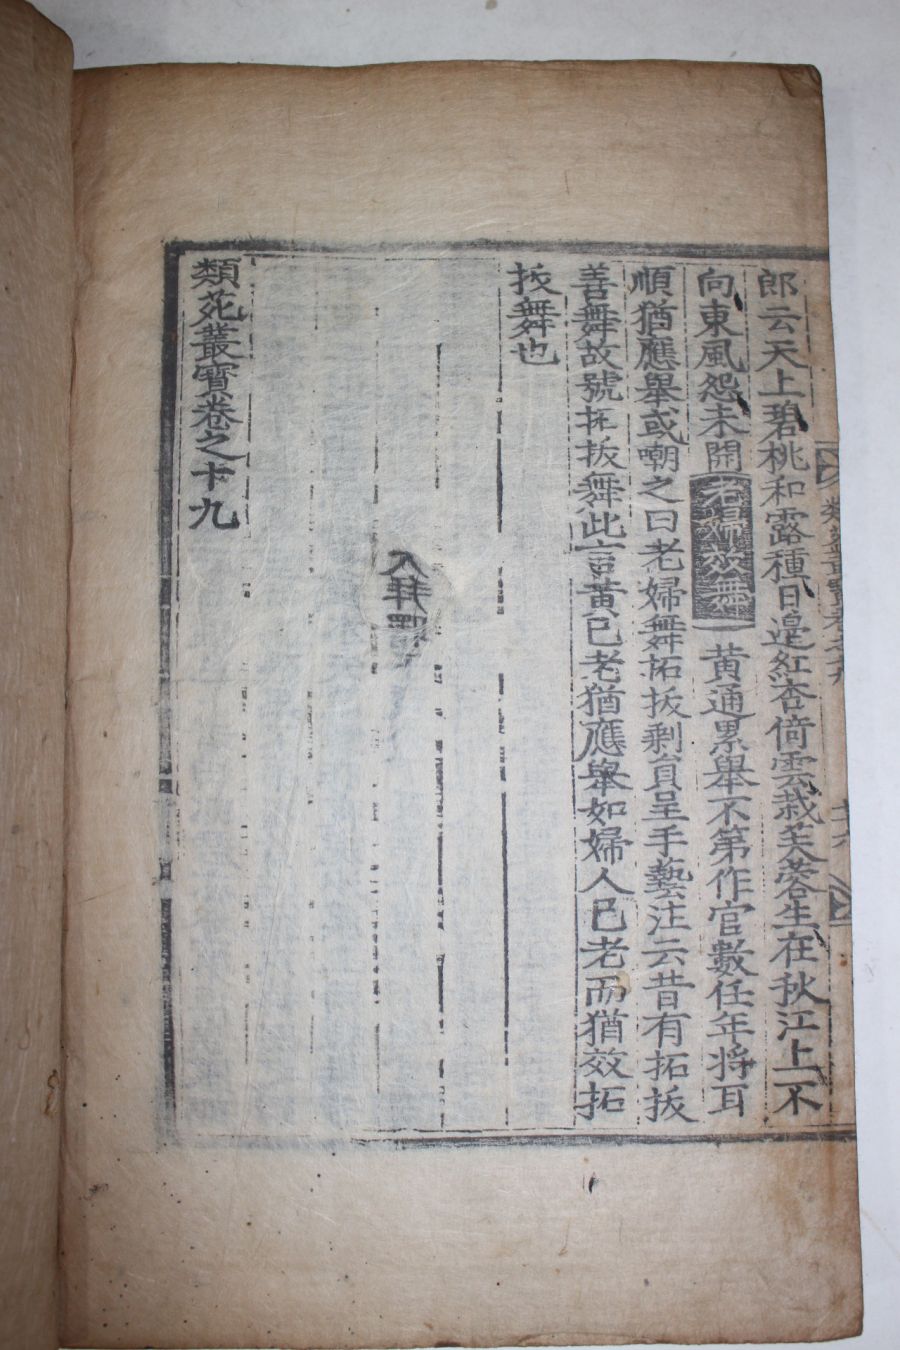 郎云天上碧桃和露種日邊紅杏倚雲栽芙蓉生在秋江上不
向東風怨未開 老婦效舞 黄通累舉不第作官數任年將耳
順猶應舉或嘲之曰老婦舞拓拔剩員呈手藝注云昔有拓拔
善舞故號拓拔舞此言黄已老猶應舉如婦人已老而猶效拓
拔舞也
類苑叢寶卷之十九